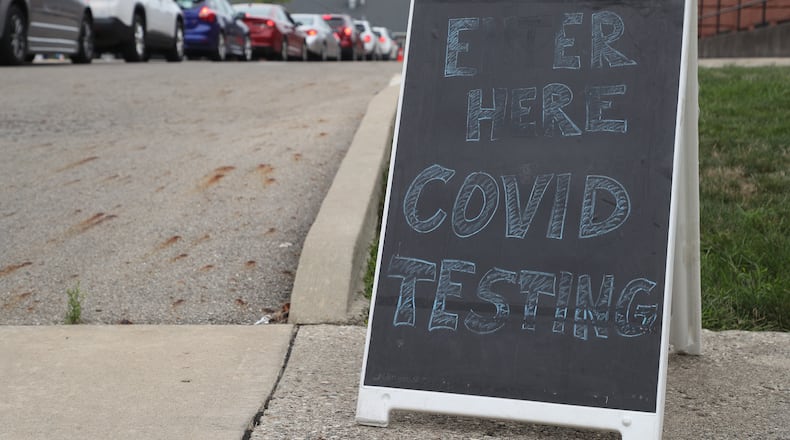 ENTER
HERE
COVID
TESTING